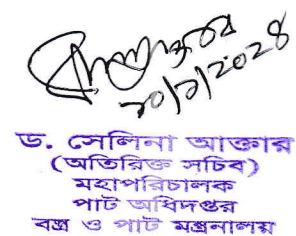 ড. সেলিনা আক্তার
(অতিরিক্ত সচিব)
মহাপরিচালক
পাট অধিদপ্তর
বস্ত্র ও পাট মন্ত্রনালয়